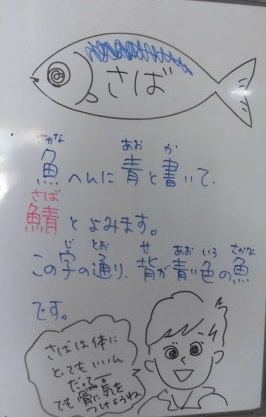 さば
魚へんに青と書いて、
さかな
あお
か
鯖とよみます。
さば
この字の通り、背が青い色の魚
じ
とお
せ
あお
いろ
さかな
です。
さばは体に
とってもいいん
だってー
でも骨に気を
つけようね